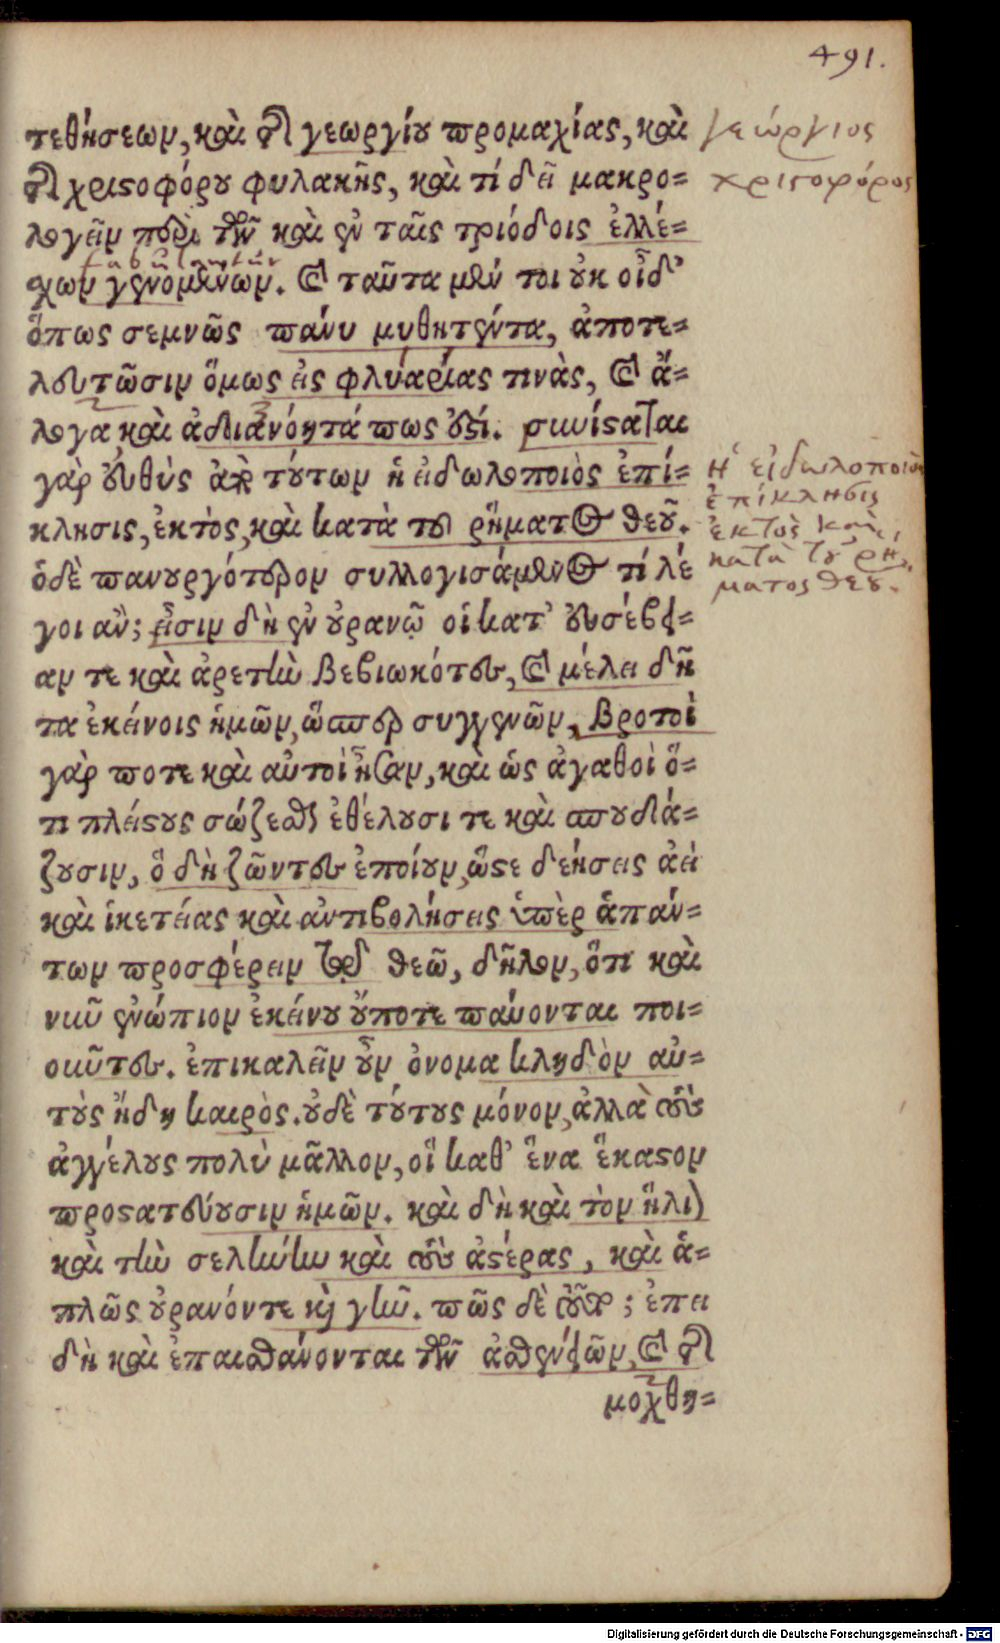 491.
τεθήσεων, καὶ τῆς γεωργίου προμαχίας, καὶ
γεώργιος
τῆς χριστοφόρου φυλακῆς, καὶ τί δεῖ μακρο=
χριστοφόρος
λογεῖν περὶ τῶν καὶ ἐν ταῖς τριόδοις ἐλλέ=
χων γενομένων. καὶ ταῦτα μέν τοι οὐκ οἶδ'
ὅπως σεμνῶς πάνυ μυθητέντα, ἀποτε=
λευτῶσιν ὅμως εἰς φλυαρίας τινὰς, καὶ ἄ=
λογα καὶ ἀδιανόητά πως ἐστί. συνίσταται
γὰρ εὐθὺς ἀπὸ τούτων ἡ εἰδωλοποιὸς ἐπί=
Ἡ εἰδωλοποιὸς
ἐπίκλησις
κλησις, ἐκτὸς, καὶ κατὰ τοῦ ῥήματος θεοῦ.
ἐκτὸς καὶ
κατὰ τοῦ ῥή=
ὁ δὲ πανουργότερον συλλογισάμενος τί λέ
ματος θεοῦ.
γοι ἂν; εἰσὶν δὴ ἐν οὐρανῷ οἱ κατ' εὐσέβει=
αν τε καὶ ἀρετὴν βεβιωκότες, καὶ μέλει δῆ
τα ἐκείνοις ἡμῶν, ὥσπερ συγγενῶν, βροτοὶ
γάρ ποτε καὶ αὐτοὶ ἦσαν, καὶ ὡς ἀγαθοὶ ὅ=
τι πλείστους σώζεσθαι ἐθέλουσι τε καὶ σπουδά=
ζουσιν, ὃ δὴ ζῶντες ἐποίουν, ὥστε δεήσεις ἀεὶ
καὶ ἱκετείας καὶ ἀντιβολήσεις ὑπὲρ ἁπάν=
των προσφέρειν τῷ θεῷ, δῆλον, ὅτι καὶ
νῦν ἐνώπιον ἐκείνου οὔποτε παύονται ποι=
οῦντες. ἐπικαλεῖν οὖν ὀνομακληδὸν αὐ=
τοὺς ἤδη καιρὸς. οὐδὲ τούτους μόνον, ἀλλὰ τοὺς
ἀγγέλους πολὺ μᾶλλον, οἳ καθ' ἕνα ἕκαστον
προστατεύουσιν ἡμῶν. καὶ δὴ καὶ τὸν ἥλιον
καὶ τὴν σελήνην καὶ τοὺς ἀστέρας, καὶ ἁ=
πλῶς οὐρανόν τε καὶ γῆν. πῶς δὲ οὔχ; ἐπει
δὴ καὶ ἐπαισθάνονται τῶν ἀσθενειῶν, καὶ τῆς
μοχθη=
Digitalisierung gefördert durch die Deutsche Forschungsgemeinschaft - DFG